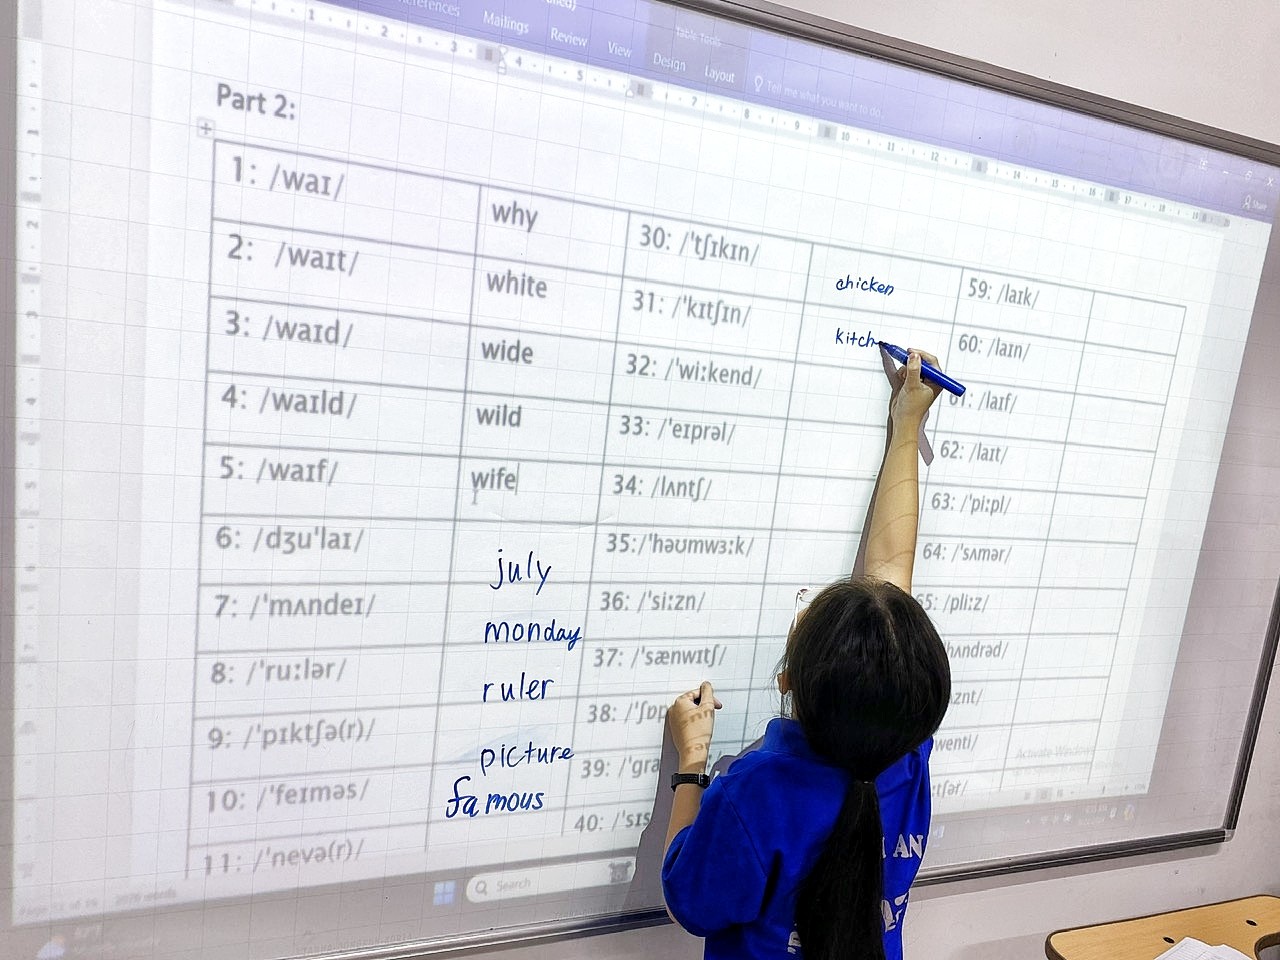 References Mailings Review View Design Layout Tell me what you want to do
Table Tools
Share
Part 2:
1: /waɪ/ why 30: /'tʃɪkɪn/ chicken 59: /laɪk/
2: /waɪt/ white 31: /'kɪtʃɪn/ kitch 60: /laɪn/
3: /waɪd/ wide 32: /'wiːkend/ 61: /laɪf/
4: /waɪld/ wild 33: /'eɪprəl/ 62: /laɪt/
5: /waɪf/ wife 34: /lʌntʃ/ 63: /'piːpl/
6: /dʒu'laɪ/ july 35:/'həʊmwɜːk/ 64: /'sʌmər/
7: /'mʌndeɪ/ monday 36: /'siːzn/ 65: /pliːz/
8: /'ruːlər/ ruler 37: /'sænwɪtʃ/ hʌndrəd/
9: /'pɪktʃə(r)/ picture 38: /'ʃɒp
10: /'feɪməs/ famous 39: /'gra wenti/
11: /'nevə(r)/ 40: /'sɪs
Activate Windows
Search
AN